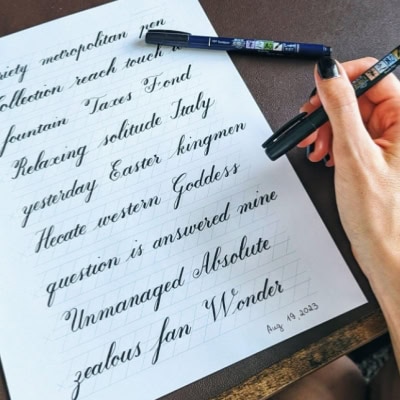 metropolitan pen
collection reach touch
fountain Taxes Fond
Relaxing solitude Italy
yesterday Easter kingmen
Hecate western Goddess
question is answered mine
Unmanaged Absolute
zealous fan Wonder
Aug 19, 2023